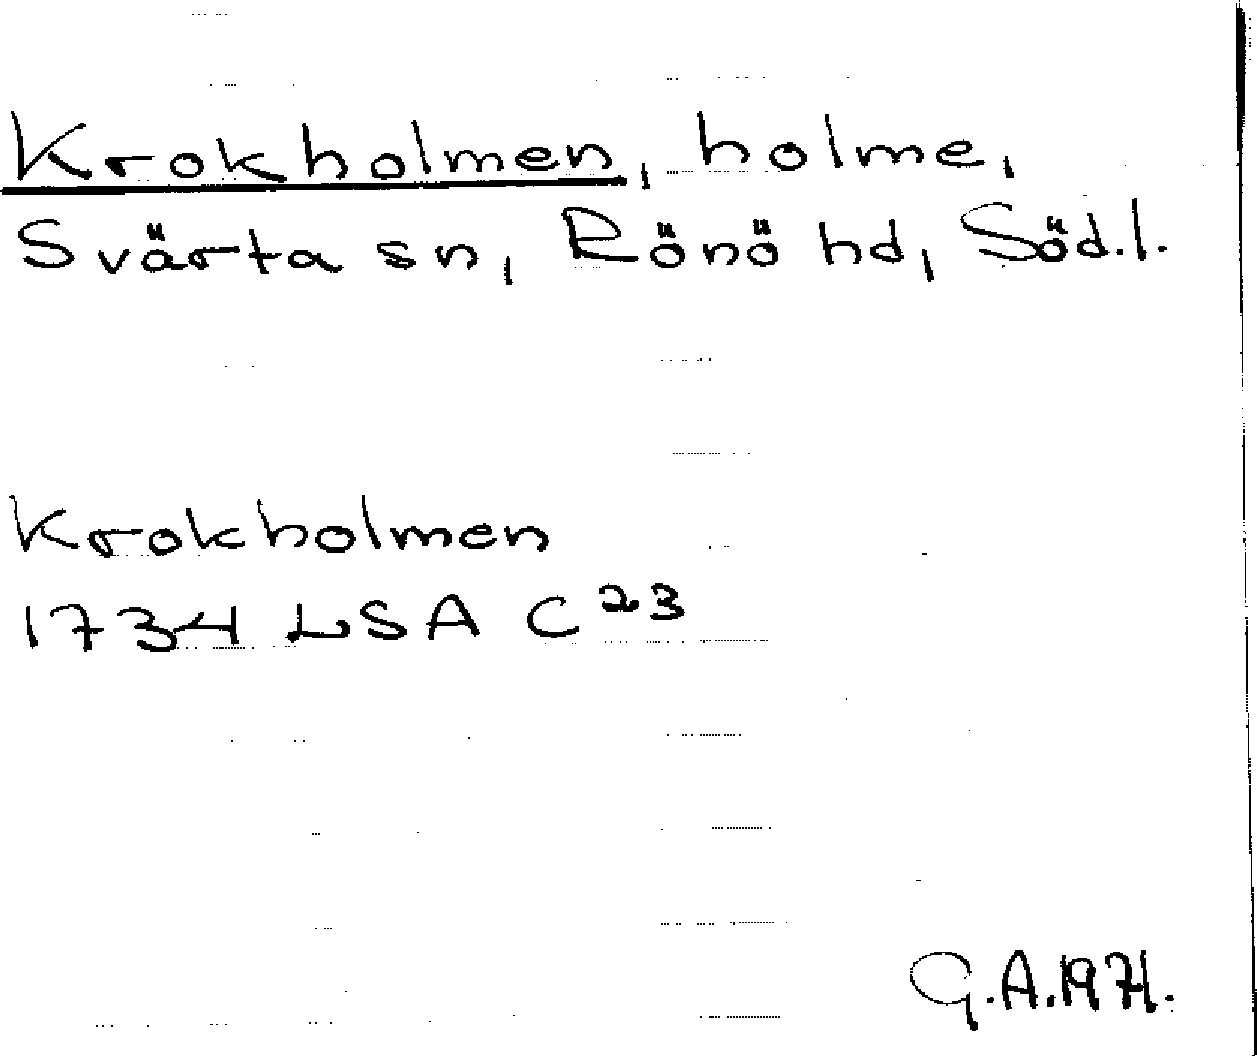 Krokholmen, holme,
Svärta sn, Rönö hd, Söd.l.
Krokholmen
1734 LSA C²³
G.A.1971.